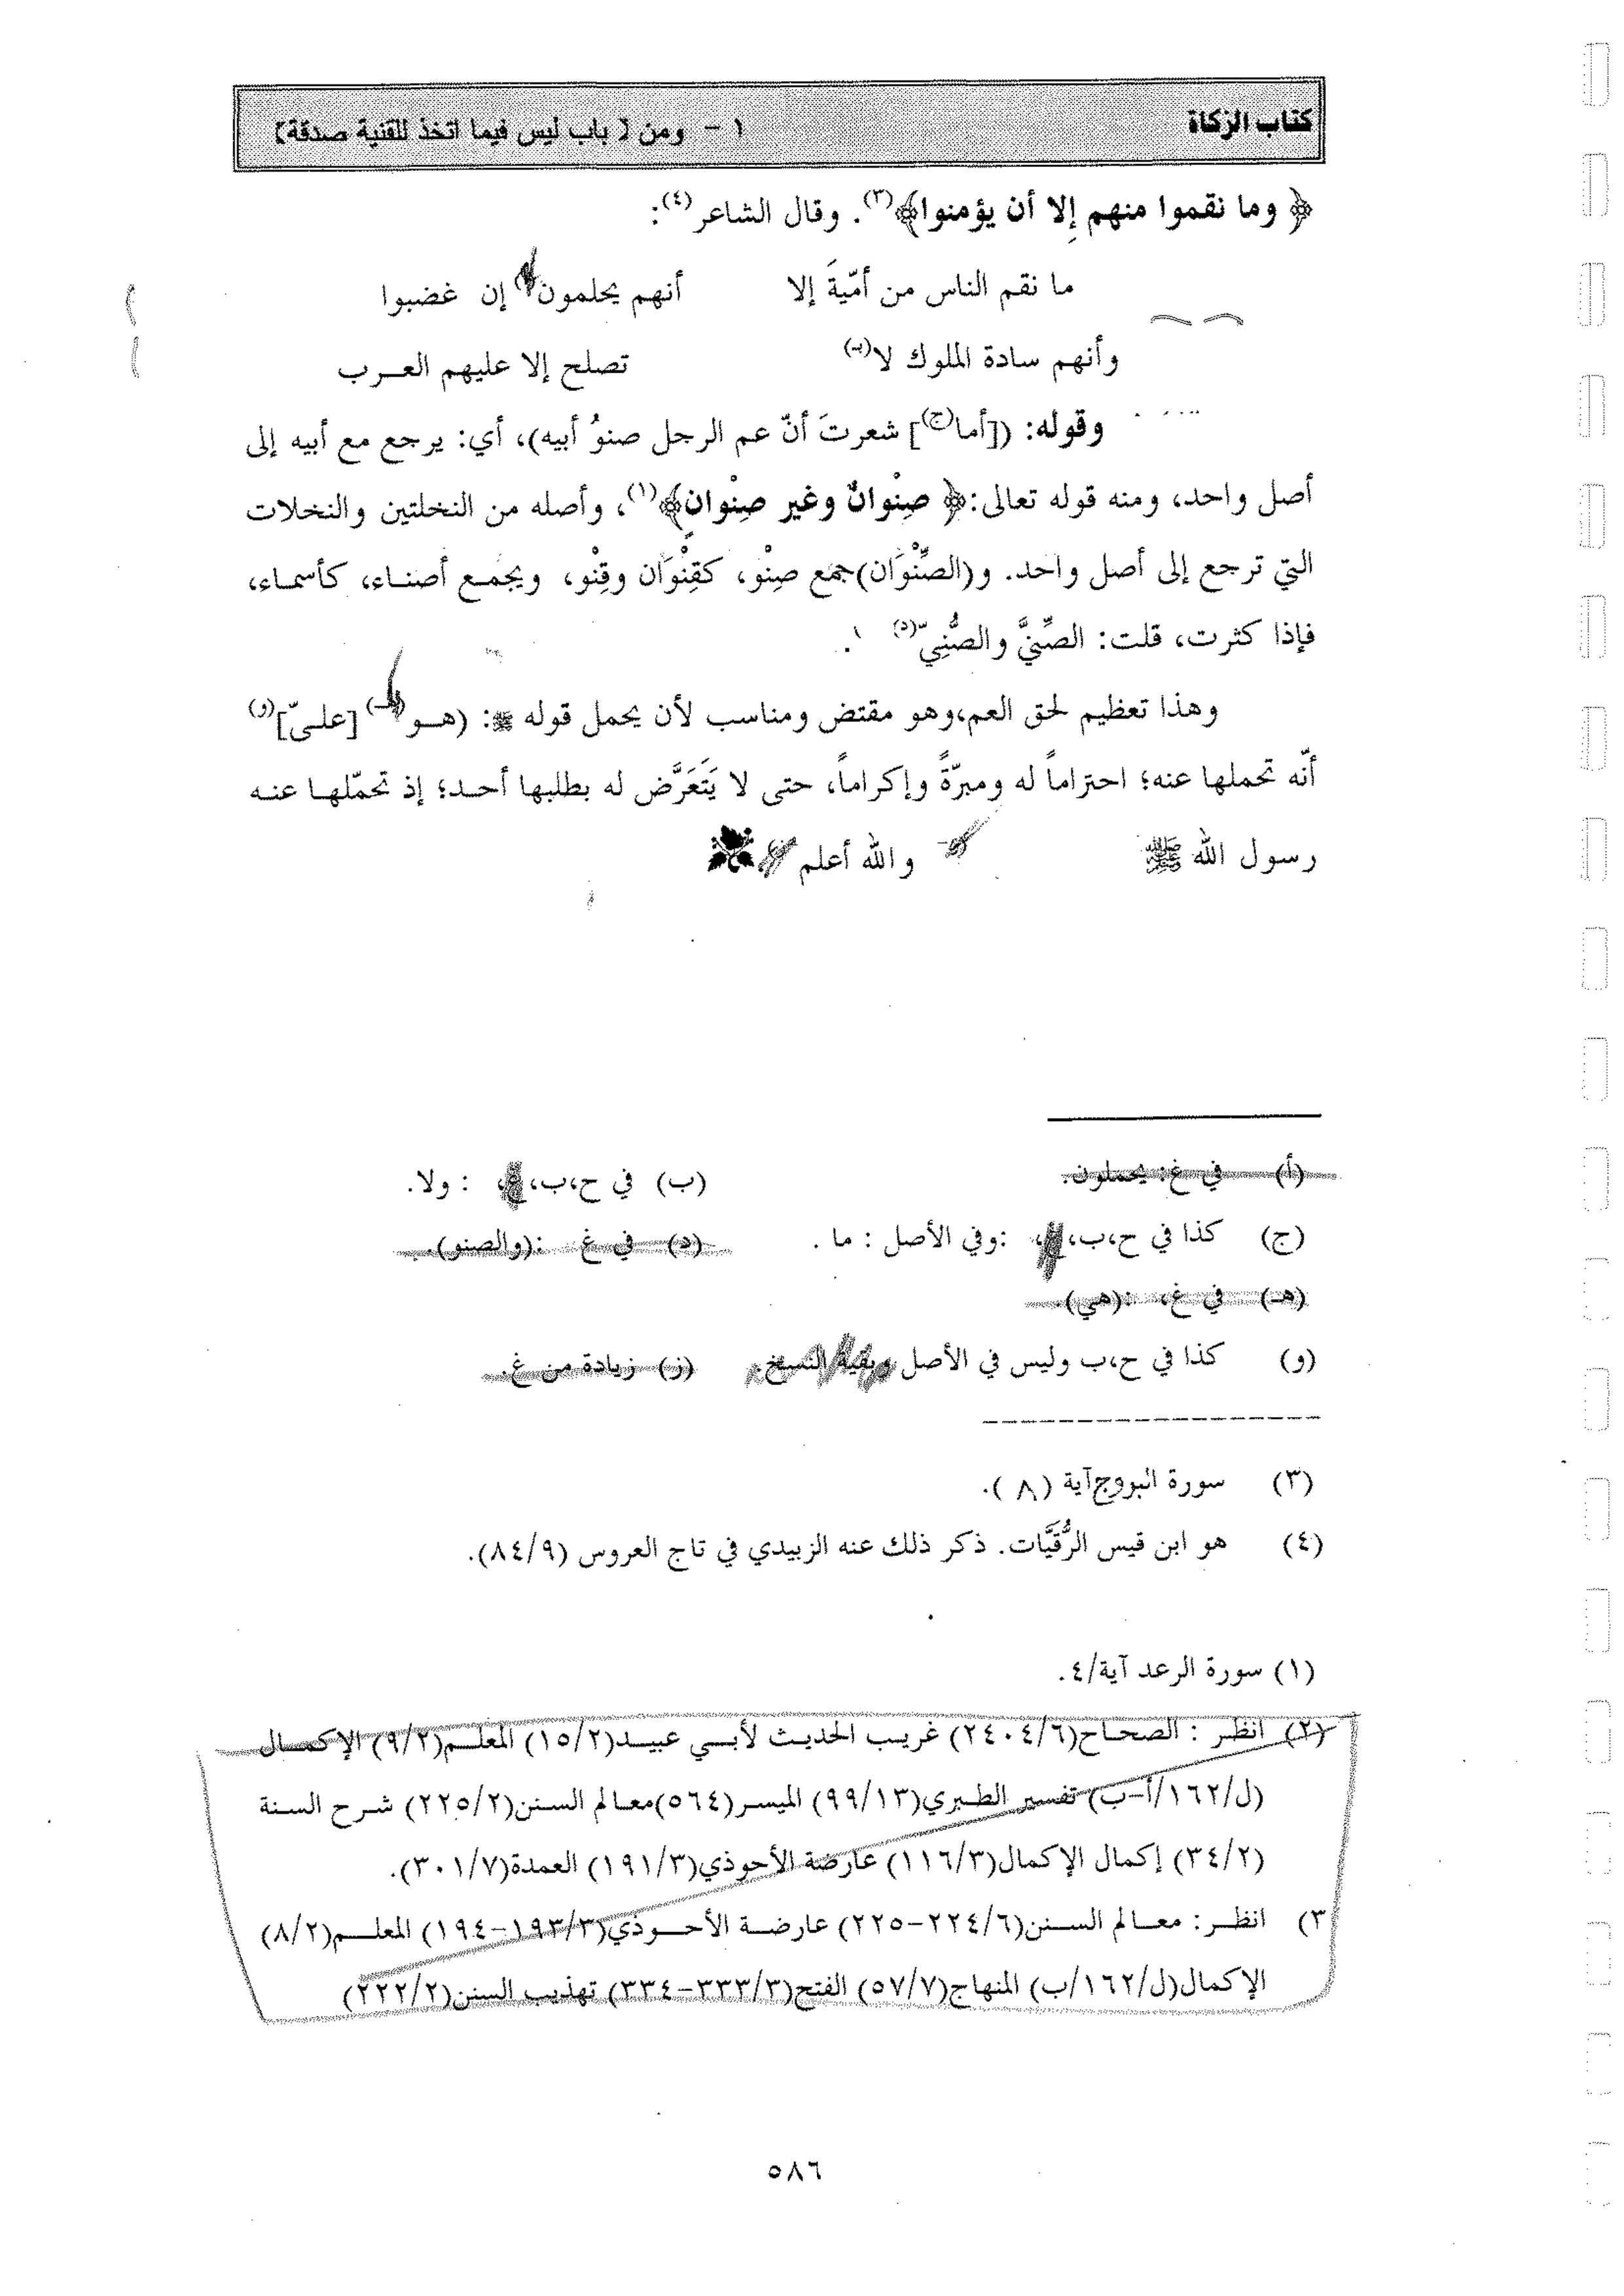 كتاب الزكاة ١ - ومن [ باب ليس فيما اتخذ للقنية صدقة]
﴿ وما نقموا منهم إلا أن يؤمنوا﴾(٣). وقال الشاعر(٤):
ما نقم الناس من أمّيةَ إلا أنهم يحلمون إن غضبوا
وأنهم سادة الملوك لا(ب) تصلح إلا عليهم العــرب
وقوله: ([أما(ج)] شعرتَ أنّ عم الرجل صنوُ أبيه)، أي: يرجع مع أبيه إلى
أصل واحد، ومنه قوله تعالى:﴿ صِنْوانٌ وغير صِنْوانٍ﴾(١)، وأصله من النخلتين والنخلات
التي ترجع إلى أصل واحد. و(الصِّنْوَان)جمَع صِنْو، كقِنْوَان وقِنْو، ويجمـع أصنـاء، كأسمـاء،
فإذا كثرت، قلت: الصِّنيَّ والصُّنِيّ(د) .
وهذا تعظيم لحق العم،وهو مقتض ومناسب لأن يحمل قوله ﷺ: (هــو(هـ) [علـيّ](و)
أنّه تحملها عنه؛ احتراماً له ومبرّةً وإكراماً، حتى لا يَتَعَرَّض له بطلبها أحـد؛ إذ تحمّلهـا عنـه
رسول الله ﷺ والله أعلم
(أ) في غ: يحملون. (ب) في ح،ب، غ، : ولا.
(ج) كذا في ح،ب، غ، :وفي الأصل : ما . (د) في غ :(والصنو).
(هـ) في غ، :(هي).
(و) كذا في ح،ب وليس في الأصل وبقية النسخ. (ز) زيادة من غ.
(٣) سورة البروج آية (٨ ).
(٤) هو ابن قيس الرُّقيَّات. ذكر ذلك عنه الزبيدي في تاج العروس (٨٤/٩).
(١) سورة الرعد آية/٤.
(٢) انظـر : الصحـاح(٢٤٠٤/٦) غريـب الحديـث لأبـي عبيـد(١٥/٢) المعلـم(٩/٢) الإكمـال
(ل/١٦٢/أ-ب) تفسير الطبري(٩٩/١٣) الميسـر(٥٦٤)معـالم السـنن(٢٢٥/٢) شـرح السـنة
(٣٤/٢) إكمال الإكمال(١١٦/٣) عارضة الأحوذي(١٩١/٣) العمدة(٣٠١/٧).
٣) انظـر: معـالم السـنن(٢٢٤/٦-٢٢٥) عارضـة الأحـوذي(١٩٣/٣-١٩٤) المعلـم(٨/٢)
الإكمال(ل/١٦٢/ب) المنهاج(٥٧/٧) الفتح(٣٣٣/٣-٣٣٤) تهذيب السنن(٢٢٢/٢)
٥٨٦